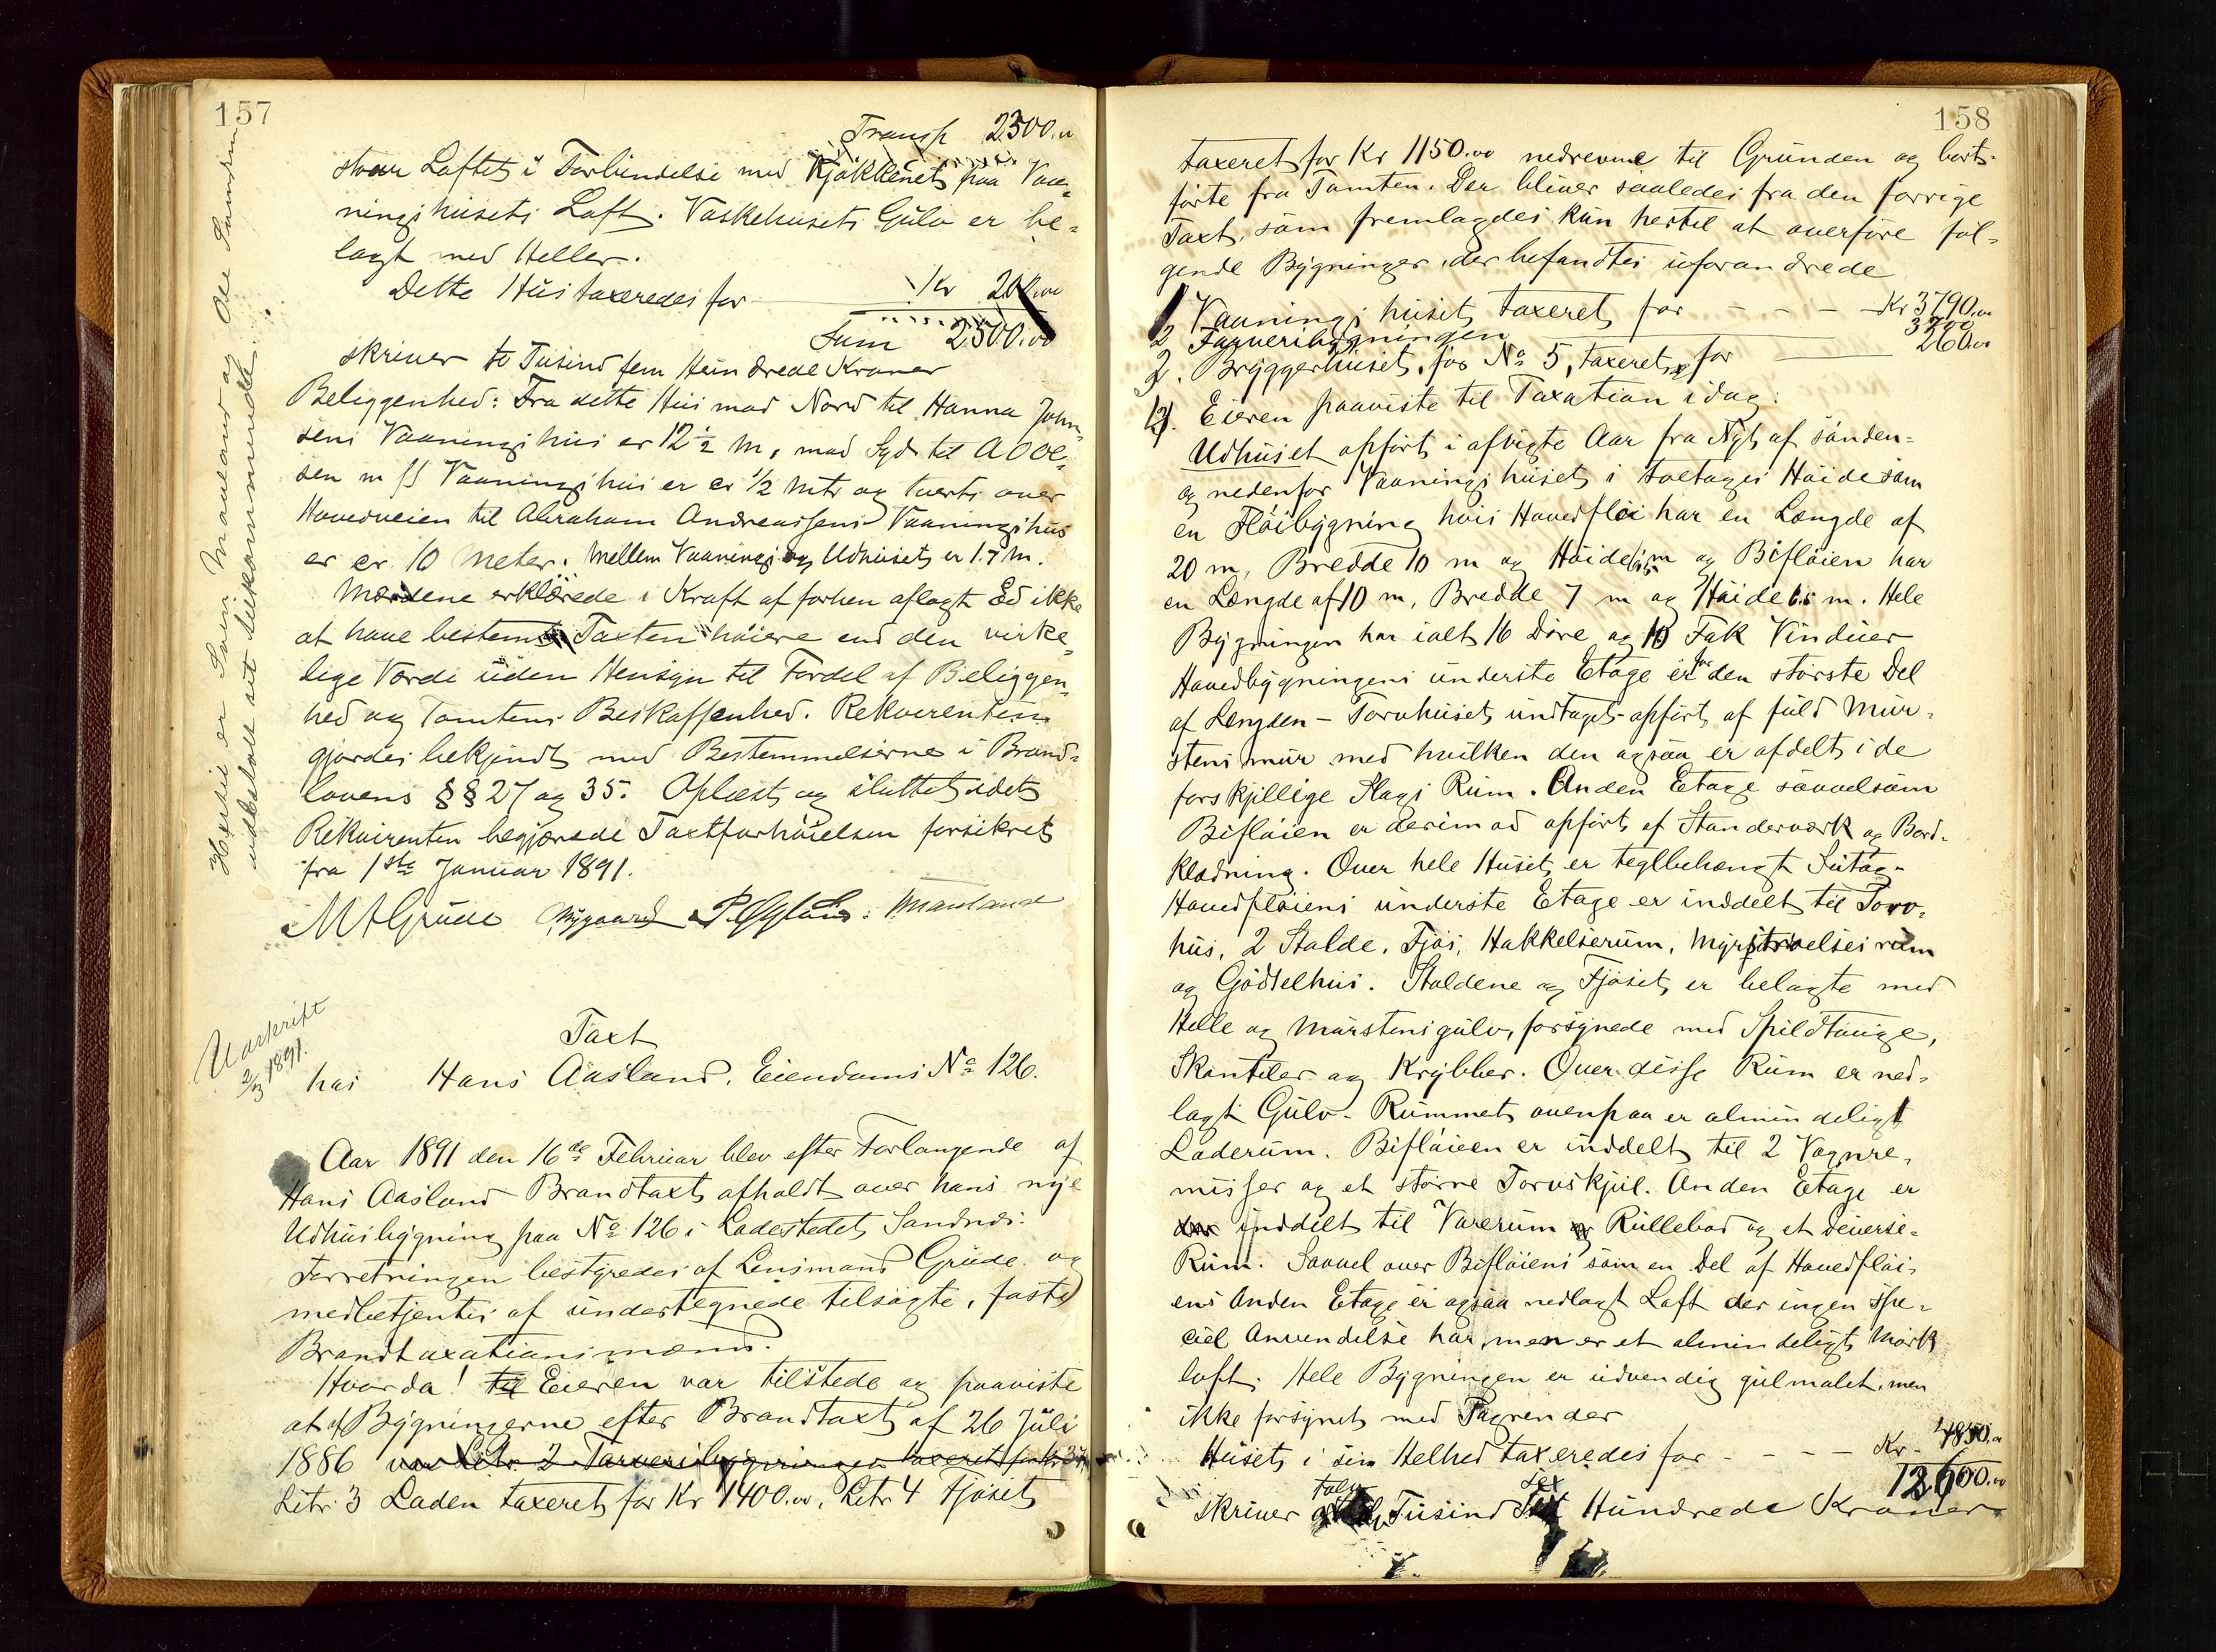 157
Transp 2300.00
staar Loftet i Forbindelse med Kjøkkenet paa Vaa-
ningshusets Loft. Vaskehusets Gulv er be-
lagt med Heller.
Dette Hus taxeredes for Kr 200.00
Sum 2500.00
skriver to Tusind fem Hundrede Kroner
Beliggenhed: Fra dette Hus mod Nord til Hanna John-
sens Vaaningshus er 12 1/2 m, mod Syd til A O Ol-
sen m fl Vaaningshus er cr 1/2 mtr og tverts over
Hovedveien til Abraham Andreassens Vaaningshus
er cr. 10 Meter. Mellem Vaanings og Udhuset er 1.7 m.
Mændene erklærede i Kraft af forhen aflagt Ed ikke
at have bestemt Taxten høiere end den virke-
lige Værdi uden Hensyn til Fordel af Beliggen-
hed og Tomtens Beskaffenhed. Rekvirenten
gjordes bekjendt med Bestemmelserne i Brand-
lovens §§ 27 og 35. Oplæst og sluttet idet
Rekvirenten begjærede Taxtforhøielsen forsikret
fra 1ste Januar 1891.
M A Grude
Huseier er Svein Maaland og Ole Sundem
udbetalt sit tilkommende
Uarkrift
2/3 1891.
Taxt
hos Hans Aasland, Eiendoms No 126.
Aar 1891 den 16de Februar blev efter Forlangende af
Hans Aasland Brandtaxt afholdt over hans nye
Udhusbygning paa No 126 i Ladestedet Sandnes.
Forretningen bestyredes af Lensmand Grude og
medbetjentes af undertegnede tilsagte, faste
Brandtaxationsmænd.
Hvorda! til Eieren var tilstede og paaviste
at af Bygningerne efter Brandtaxt af 26 Juli
1886 var Litr. 2 Farveribygningen taxeret for kr 32
Litr 3 Laden taxeret for Kr 1400.00, Litr 4 Fjøset
158
taxeret for Kr 1150.00 nedrevne til Grunden og bort-
førte fra Tomten. Der bliver saaledes fra den forrige
Taxt, som fremlagdes kun hertil at overføre føl-
gende Bygninger, der befandtes uforandrede
1 Vaaningshuset taxeret for - - - Kr 3790.00
2 Farveribygningen 3200
3. Bryggerhuset, før No 5, taxeret for 260.00
4. Eieren paaviste til Taxation idag:
Udhuset opført i afvigte Aar fra Nyt af sønden-
og nedenfor Vaaningshuset i toetages Høide som
en Fløibygning hvis Hovedfløi har en Længde af
20 m, Bredde 10 m og Høide 6.5 m og Bifløien har
en Længde af 10 m, Bredde 7 m og Høide 6.5 m. Hele
Bygningen har ialt 16 Døre og 10 Fak Vinduer
Hovedbygningens underste Etage er for den største Del
af Længden - Torvhuset undtaget - opført af fuld Mur-
stensmur med hvilken den ogsaa er afdelt i de
forskjellige Slags Rum. Anden Etage saavelsom
Bifløien er derimod opført af Standerværk og Bord-
klædning. Over hele Huset er teglbehængt Sutag.
Hovedfløiens underste Etage er inddelt til Torv-
hus, 2 Stalde, Fjøs, Hakkelserum, Myrstrøelsesrum
og Gjødselhus. Staldene og Fjøset er belagte med
Helle og Murstensgulv, forsynede med Spildtauge,
Skantiler og Krybber. Over disse Rum er ned-
lagt Gulv. Rummet ovenpaa er almindeligt
Laderum. Bifløien er inddelt til 2 Vognre-
misser og et større Torvskjul. Anden Etage er
der inddelt til Varerum og Rullebod og et deverse-
Rum. Saavel over Bifløiens som en Del af Hovedfløi-
ens Anden Etage er ogsaa nedlagt Loft der ingen spe-
ciel Anvendelse har, men er et almindeligt Mørk
loft. Hele Bygningen er udvendig gulmalet, men
ikke forsynet med Tagrender
Huset i sin Helhed taxeredes for - - - Kr.
12600.00
skriver tolv Tusind sex Hundrede Kroner